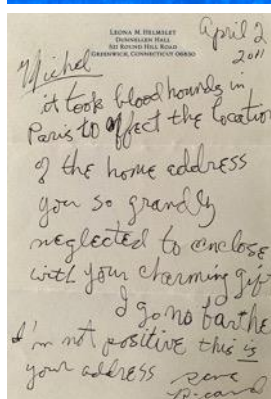 LEONA M. HELMSLEY
DUNNELLEN HALL
521 ROUND HILL ROAD
GREENWICH, CONNECTICUT 06830
April 2
2011
Michel
it took bloodhounds in
Paris to effect the location
of the home address
you so grandly
neglected to enclose
with your charming gift
I go no farther
I'm not positive this is
your address